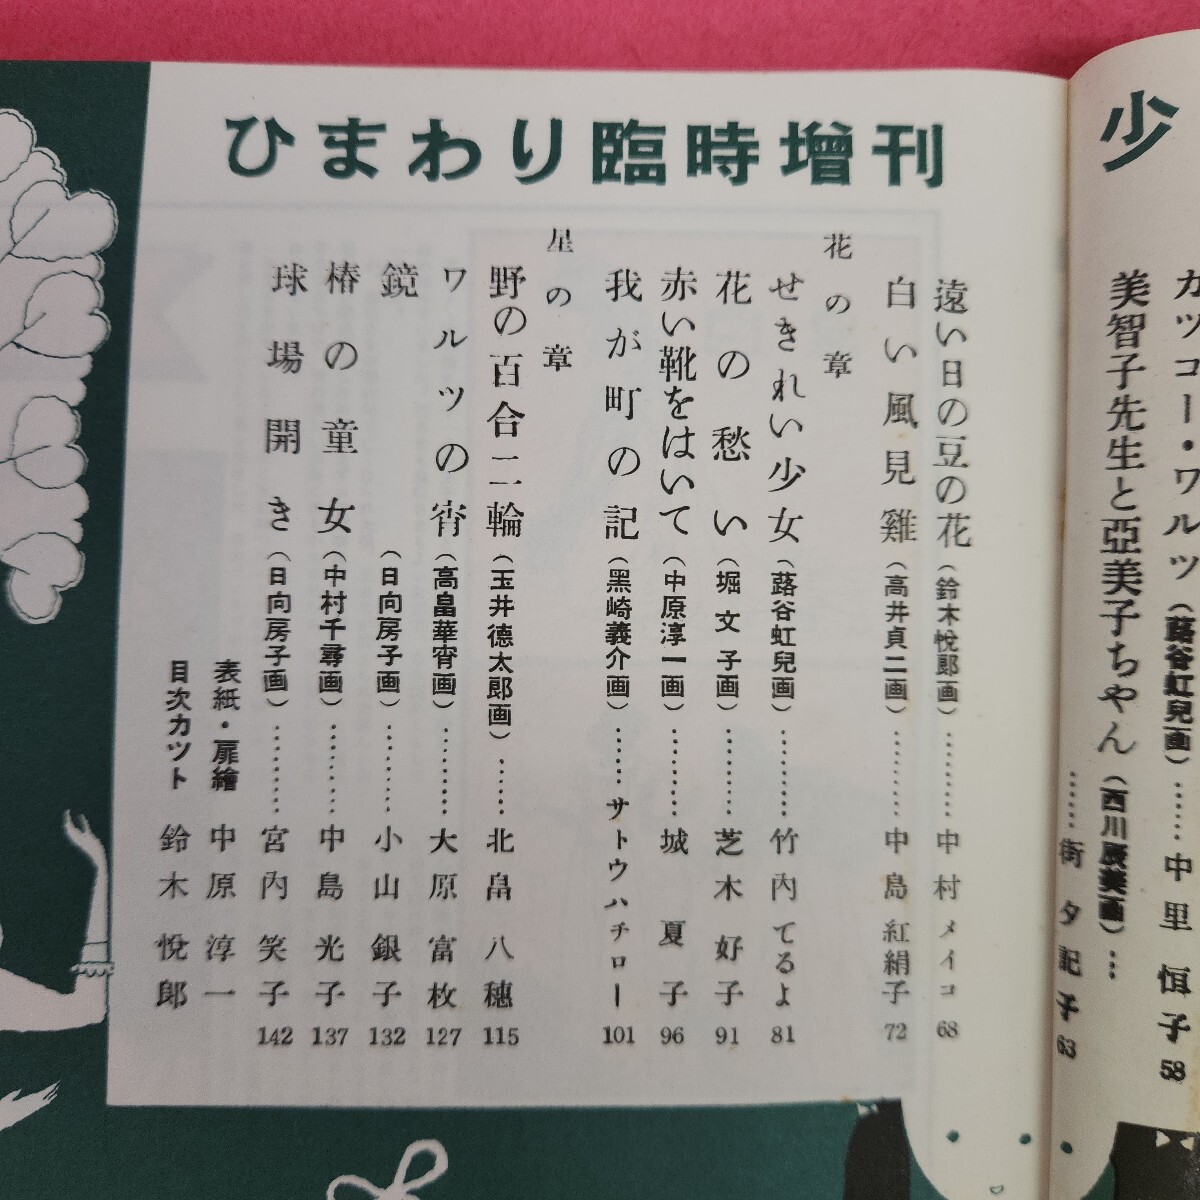 ひまわり臨時増刊
少
カツコー・ワルツ（蕗谷虹兒画）……中里恒子 58
美智子先生と亞美子ちやん（西川辰美画）…
……街夕記子 63
遠い日の豆の花（鈴木悅郎画）………中村メイコ 68
白い風見雞（高井貞二画）………中島紅絹子 72
花の章
せきれい少女（蕗谷虹兒画）………竹内てるよ 81
花の愁い（堀文子画）………芝木好子 91
赤い靴をはいて（中原淳一画）………城夏子 96
我が町の記（黑崎義介画）……サトウハチロー 101
星の章
野の百合二輪（玉井徳太郎画）……北畠八穗 115
ワルツの宵（高畠華宵画）………大原富枚 127
鏡（日向房子画）…………小山銀子 132
椿の童女（中村千尋画）…………中島光子 137
球場開き（日向房子画）…………宮内笑子 142
表紙・扉繪 中原淳一
目次カツト 鈴木悅郎